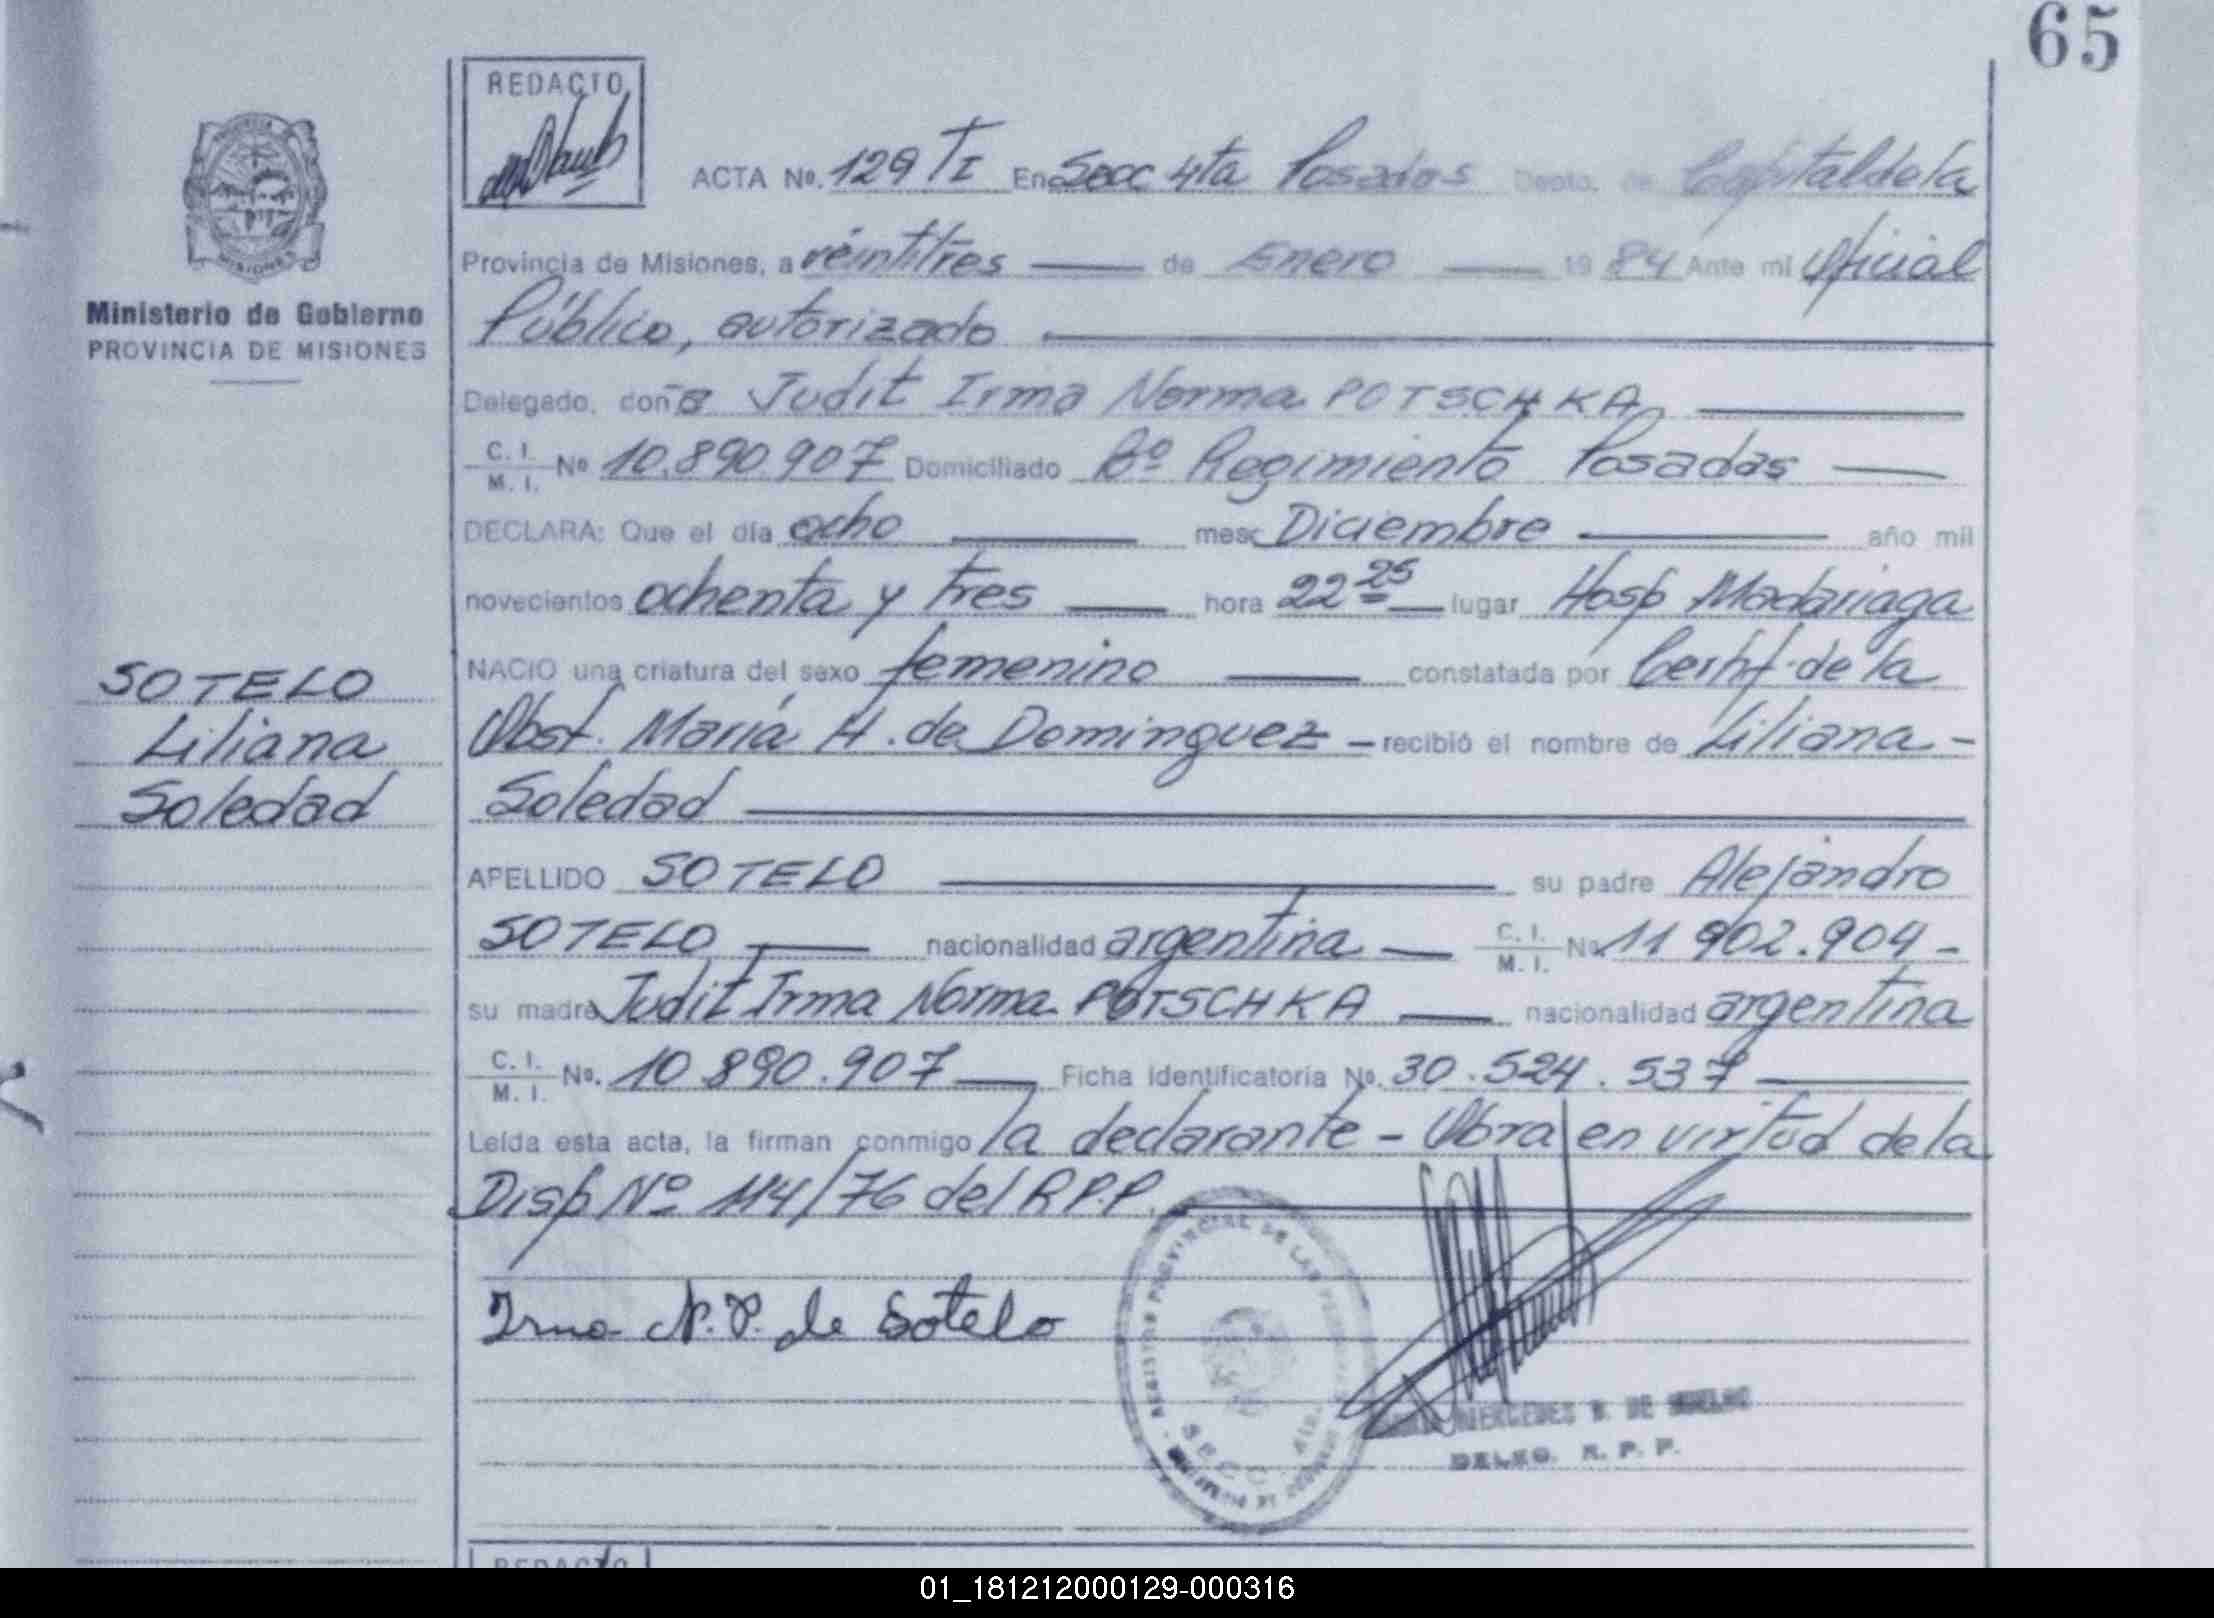 65
REDACTO
ACTA No. 129 TI En Secc 4ta Posadas Depto. de Capital de la
Provincia de Misiones, a veintitres de Enero 19 84 Ante mi Oficial
Público, autorizado
Ministerio de Gobierno
PROVINCIA DE MISIONES
MISIONES
Delegado, doña Judit Irma Norma POTSCHKA
C. I. M. I. No 10.890.907 Domiciliado Bº Regimiento Posadas
DECLARA: Que el día ocho mes Diciembre año mil
novecientos ochenta y tres hora 22 25 lugar Hosp Madariaga
NACIO una criatura del sexo femenino constatada por Certif. de la
Obst. María H. de Dominguez - recibió el nombre de Liliana -
Soledad
SOTELO
Liliana
Soledad
APELLIDO SOTELO su padre Alejandro
SOTELO nacionalidad argentina C. I. M. I. No 11 902.904 -
su madre Judit Irma Norma POTSCHKA nacionalidad argentina
C. I. M. I. No. 10 890.907 Ficha Identificatoria No. 30.524.537
Leída esta acta, la firman conmigo la declarante - Obra en virtud de la
Disp Nº 114/76 del R.P.P.
Irma N.P. de Sotelo
REGISTRO PROVINCIAL DE LAS PERSONAS
SECC. 4ta.
MERCEDES DE
DELEG. R. P. P.
REDACTO
01_181212000129-000316